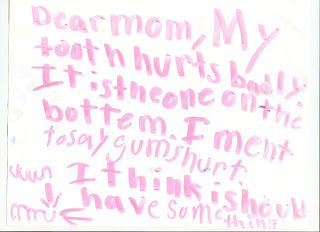 Dear mom, My
tooth hurts badly.
It is the one on the
bottem. I ment
to say gums hurt
I think i should
have some
thing